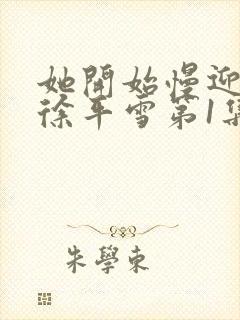 她開始慢迎
徐平雪第1集
朱學東